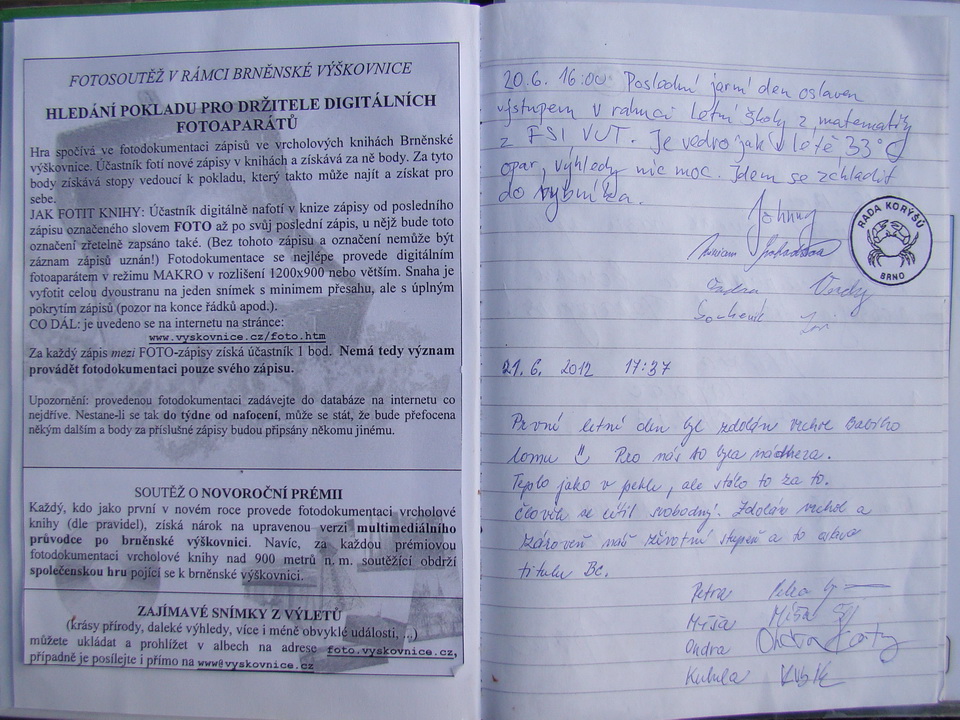 FOTOSOUTĚŽ V RÁMCI BRNĚNSKÉ VÝŠKOVNICE
HLEDÁNÍ POKLADU PRO DRŽITELE DIGITÁLNÍCH
FOTOAPARÁTŮ
Hra spočívá ve fotodokumentaci zápisů ve vrcholových knihách Brněnské
výškovnice. Účastník fotí nové zápisy v knihách a získává za ně body. Za tyto
body získává stopy vedoucí k pokladu, který takto může najít a získat pro
sebe.
JAK FOTIT KNIHY: Účastník digitálně nafotí v knize zápisy od posledního
zápisu označeného slovem FOTO až po svůj poslední zápis, u nějž bude toto
označení zřetelně zapsáno také. (Bez tohoto zápisu a označení nemůže být
záznam zápisů uznán!) Fotodokumentace se nejlépe provede digitálním
fotoaparátem v režimu MAKRO v rozlišení 1200x900 nebo větším. Snaha je
vyfotit celou dvoustranu na jeden snímek s minimem přesahu, ale s úplným
pokrytím zápisů (pozor na konce řádků apod.).
CO DÁL: je uvedeno se na internetu na stránce:
www.vyskovnice.cz/foto.htm
Za každý zápis mezi FOTO-zápisy získá účastník 1 bod. Nemá tedy význam
provádět fotodokumentaci pouze svého zápisu.
Upozornění: provedenou fotodokumentaci zadávejte do databáze na internetu co
nejdříve. Nestane-li se tak do týdne od nafocení, může se stát, že bude přefocena
někým dalším a body za příslušné zápisy budou připsány někomu jinému.
SOUTĚŽ O NOVOROČNÍ PRÉMII
Každý, kdo jako první v novém roce provede fotodokumentaci vrcholové
knihy (dle pravidel), získá nárok na upravenou verzi multimediálního
průvodce po brněnské výškovnici. Navíc, za každou prémiovou
fotodokumentaci vrcholové knihy nad 900 metrů n. m. soutěžící obdrží
společenskou hru pojící se k brněnské výškovnici.
ZAJÍMAVÉ SNÍMKY Z VÝLETŮ
(krásy přírody, daleké výhledy, více i méně obvyklé události, ...)
můžete ukládat a prohlížet v albech na adrese foto.vyskovnice.cz,
případně je posílejte i přímo na www@vyskovnice.cz
20.6. 16:00 Poslední jarní den oslaven
výstupem v rámci Letní školy z matematiky
z FSI VUT. Je vedro jak v létě 33°C
opar, výhledy nic moc. Jdem se zchladit
do rybníka.
Johnny
RADA KORÝŠŮ
BRNO
21.6. 2012 17:37
První letní den byl zdolán vrchol Babího
lomu Pro nás to byla nádhera.
Teplo jako v pekle, ale stálo to za to.
Člověk se cítil svobodný! Zdolán vrchol a
zároveň náš životní stupeň a to oslava
titulu Bc.
Petra
Míša Míša
Ondra Ondra
Kubula Kubík